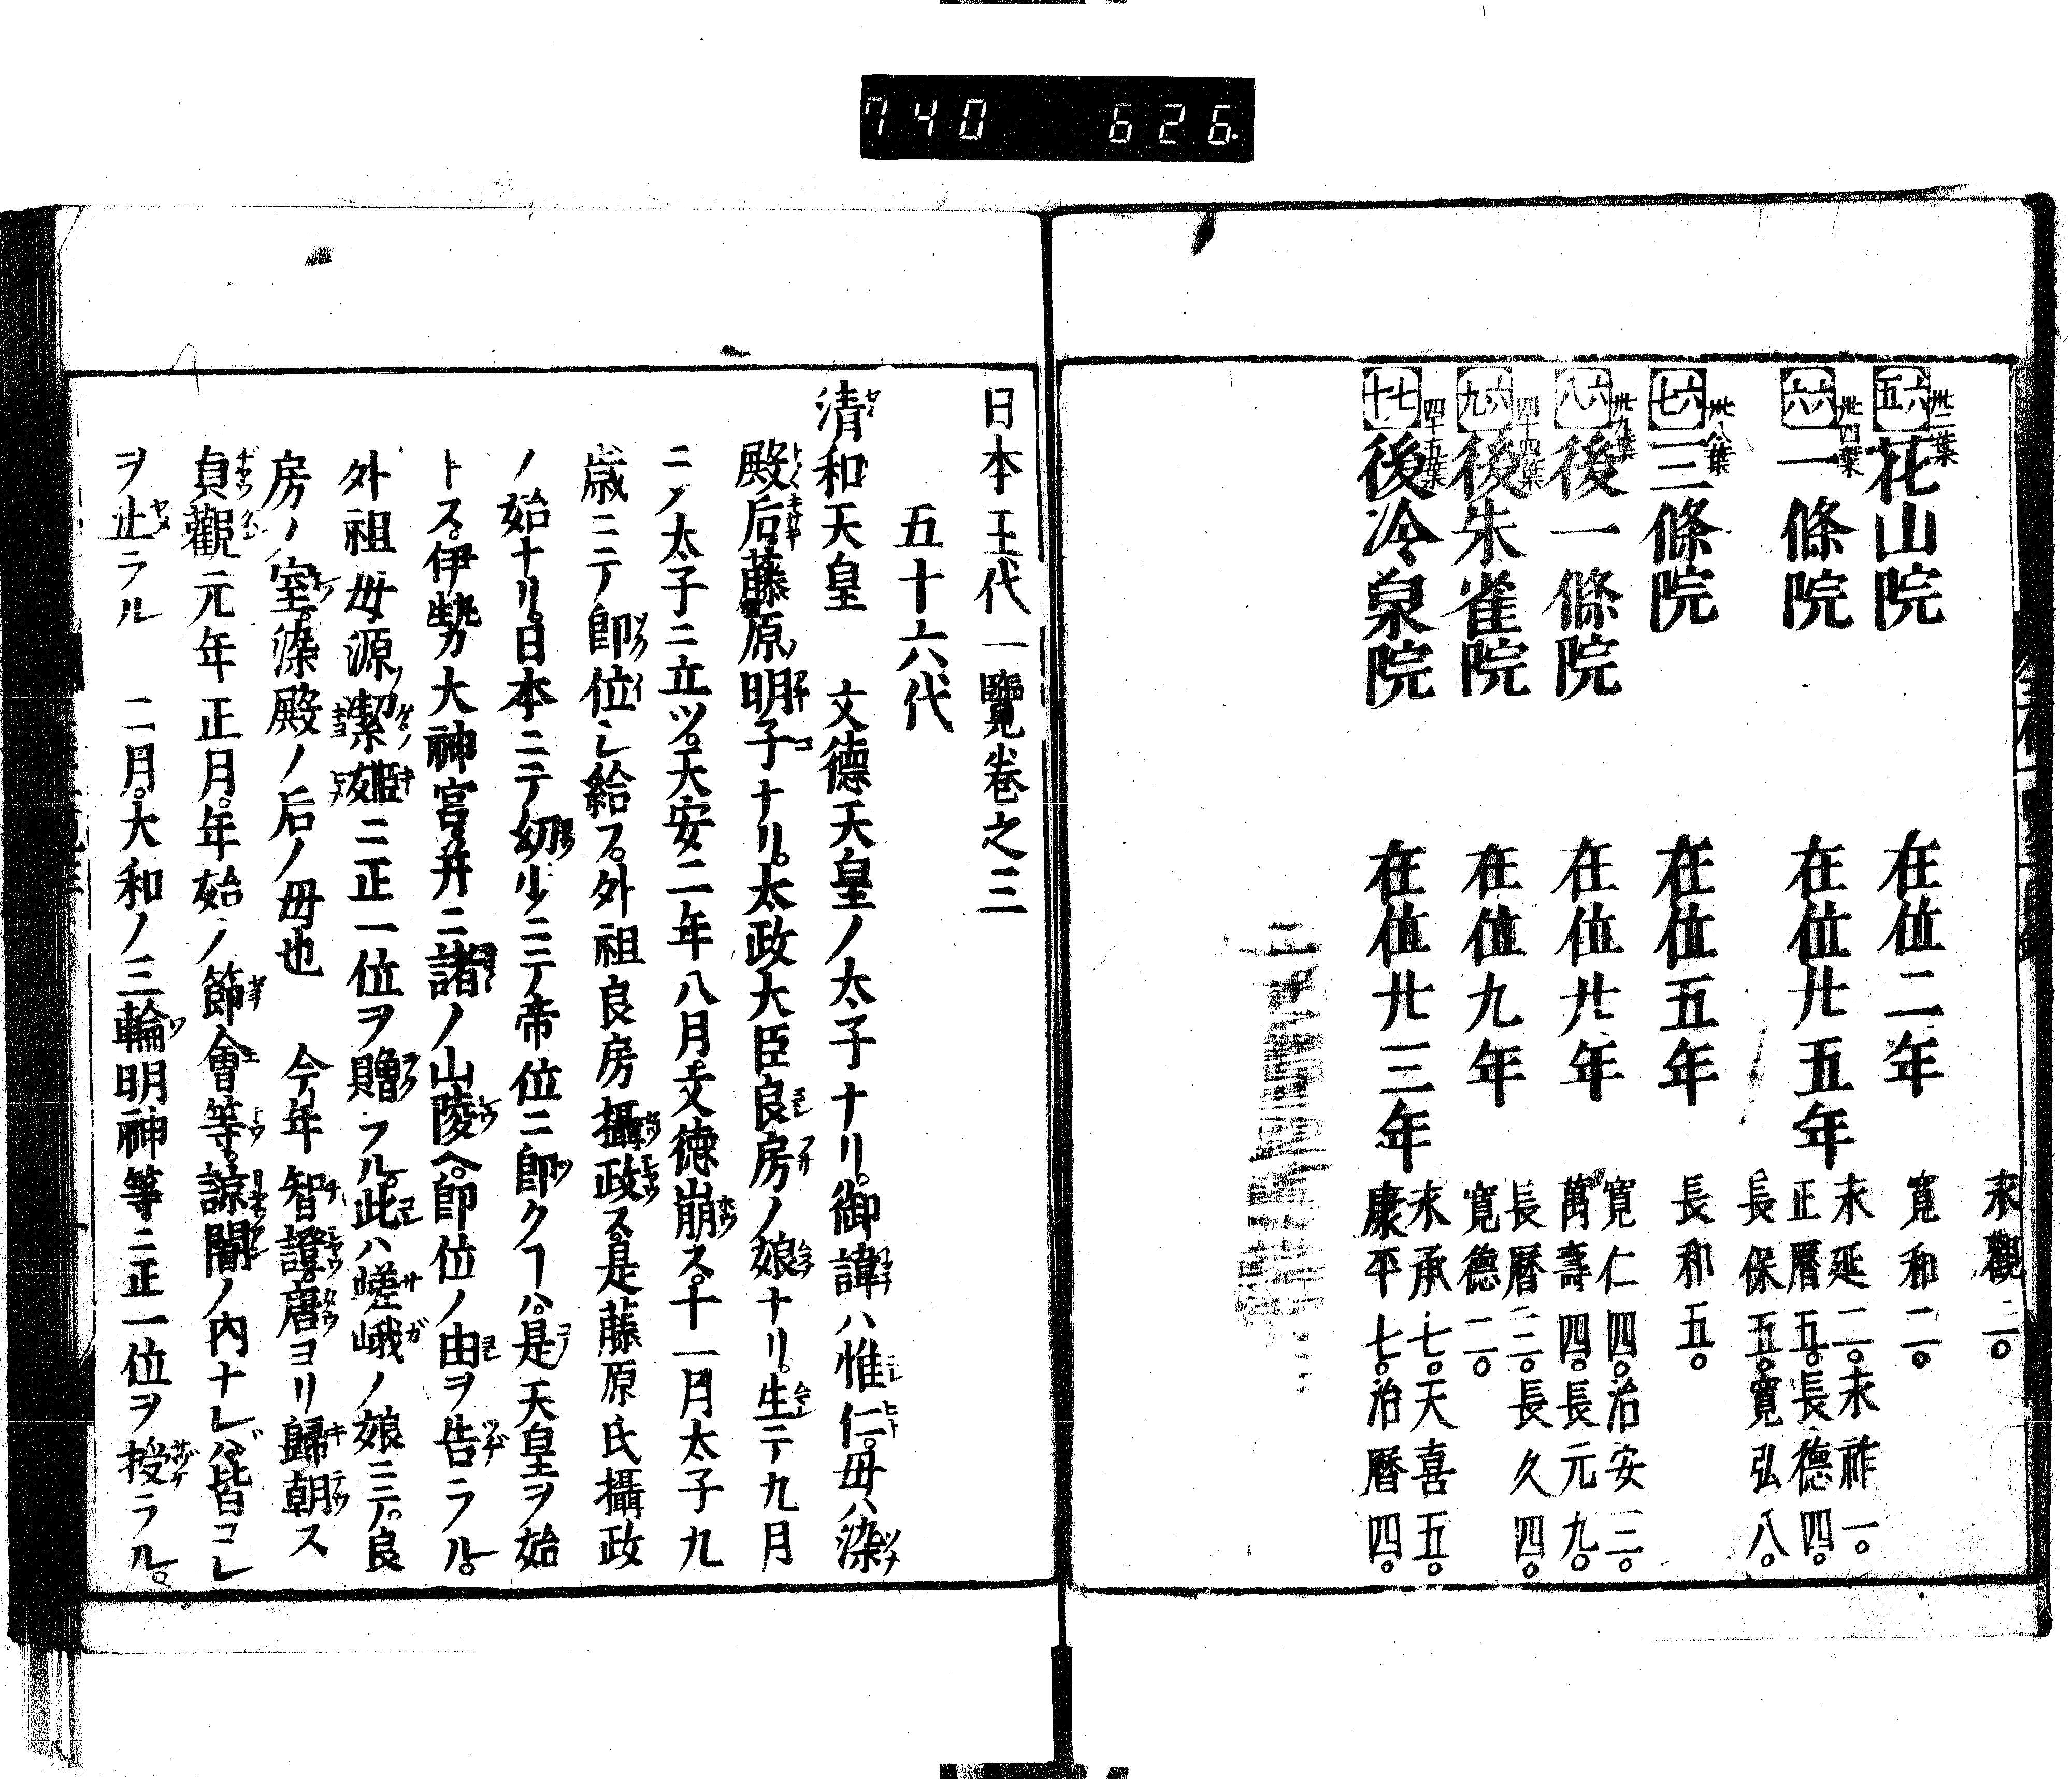 740 626.
永觀二。
六五 卅二葉 花山院 在位二年 寛和二。
六六 卅四葉 一條院 在位廿五年 永延二。永祚一。
正曆五。長德四。
長保五。寛弘八。
六七 卅八葉 三條院 在位五年 長和五。
六八 卅九葉 後一條院 在位廿年 寛仁四。治安三。
萬壽四。長元九。
六九 四十四葉 後朱雀院 在位九年 長曆三。長久四。
寛德二。
七十 四十五葉 後冷泉院 在位廿三年 永承七。天喜五。
康平七。治曆四。
日本王代一覽卷之三
五十六代
清和天皇 文德天皇ノ太子ナリ。御諱ハ惟仁。母ハ染
殿后藤原明子ナリ。太政大臣良房ノ娘ナリ。生テ九月
ニノ太子ニ立ツ。天安二年八月文德崩ス。十一月太子九
歳ニテ即位シ給フ。外祖良房攝政ス。是藤原氏攝政
ノ始ナリ。日本ニテ幼少ニテ帝位ニ即クヿハ。是天皇ヲ始
トス。伊勢大神宮。并ニ諸ノ山陵ヘ。即位ノ由ヲ告ラル。
外祖母源潔姬ニ正一位ヲ贈ラル。此ハ嵯峨ノ娘ニテ。良
房ノ室。染殿ノ后ノ母也 今年智證。唐ヨリ歸朝ス
貞觀元年正月。年始ノ節會等。諒闇ノ内ナレバ。皆コレ
ヲ止ラル 二月。大和ノ三輪明神等ニ正一位ヲ授ラル。